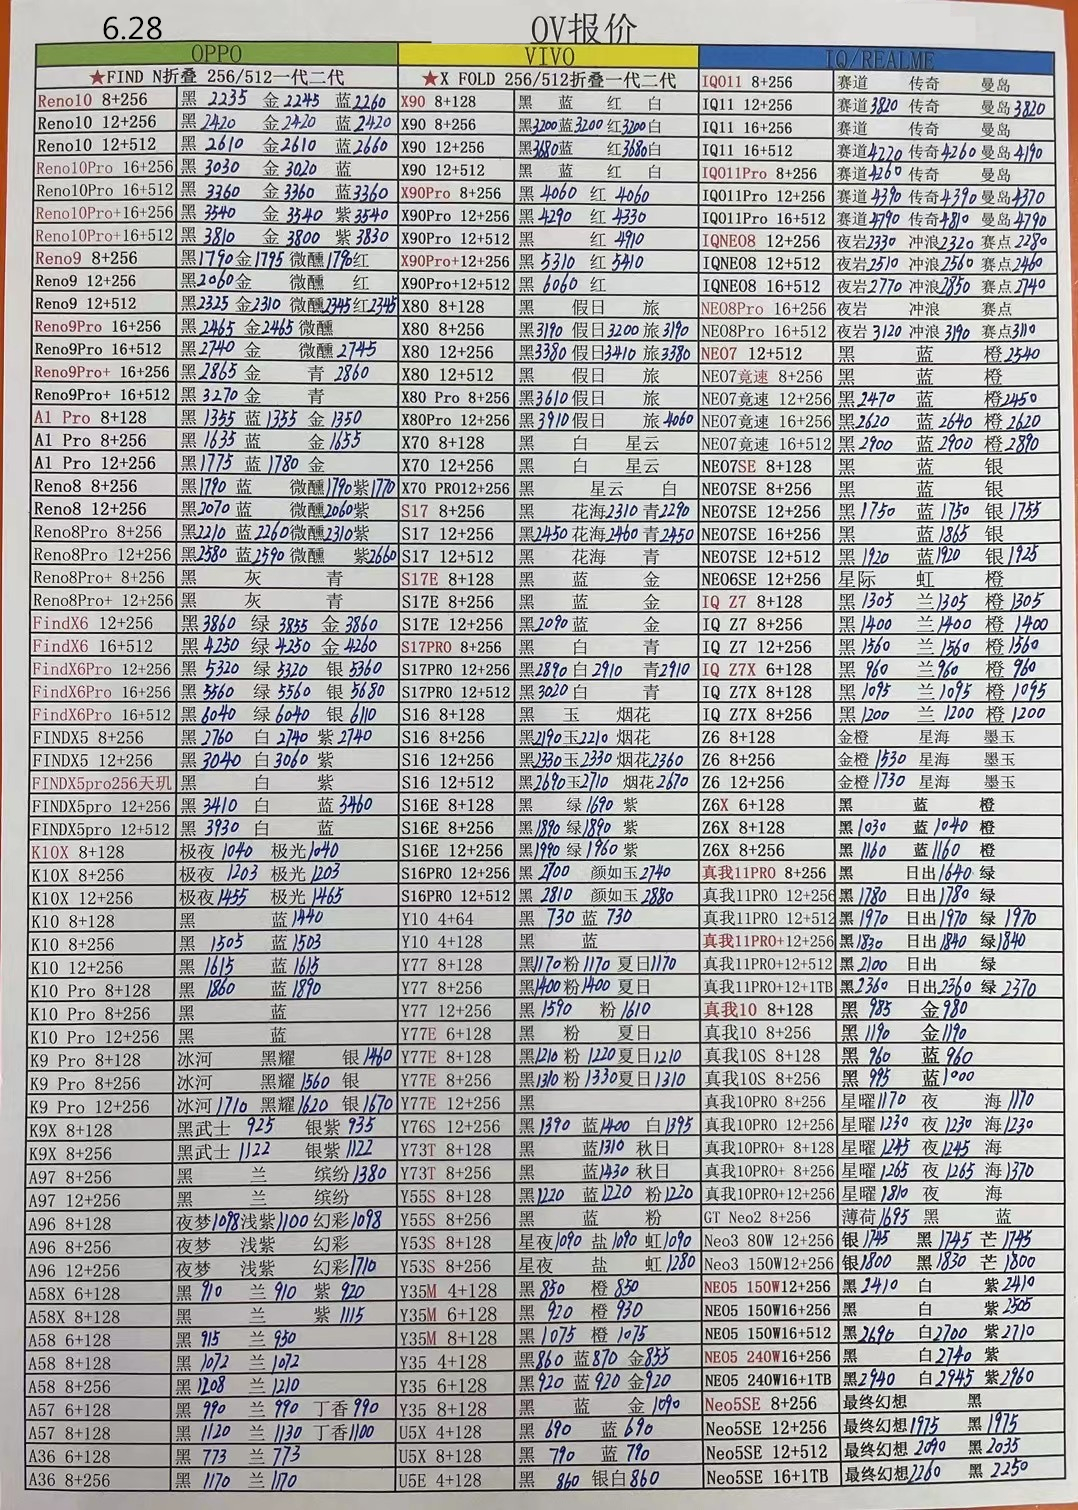 6.28
OV报价
OPPO VIVO IQ/REALME
★FIND N折叠 256/512一代二代 ★X FOLD 256/512折叠一代二代 IQO11 8+256 赛道 传奇 曼岛
Reno10 8+256 黑 2235 金 2245 蓝 2260 X90 8+128 黑 蓝 红 白 IQ11 12+256 赛道 3820 传奇 曼岛 3820
Reno10 12+256 黑 2420 金 2420 蓝 2420 X90 8+256 黑 3200 蓝 3200 红 3200 白 IQ11 16+256 赛道 传奇 曼岛
Reno10 12+512 黑 2610 金 2610 蓝 2660 X90 12+256 黑 3680 蓝 红 3680 白 IQ11 16+512 赛道 4220 传奇 4260 曼岛 4190
Reno10Pro 16+256 黑 3030 金 3020 蓝 X90 12+512 黑 蓝 红 白 IQO11Pro 8+256 赛道 4260 传奇 曼岛
Reno10Pro 16+512 黑 3360 金 3360 蓝 3360 X90Pro 8+256 黑 4060 红 4060 IQO11Pro 12+256 赛道 4390 传奇 4390 曼岛 4370
Reno10Pro+16+256 黑 3540 金 3540 紫 3540 X90Pro 12+256 黑 4290 红 4330 IQO11Pro 16+512 赛道 4790 传奇 4810 曼岛 4790
Reno10Pro+16+512 黑 3810 金 3800 紫 3830 X90Pro 12+512 黑 红 4910 IQNEO8 12+256 夜岩 2330 冲浪 2320 赛点 2280
Reno9 8+256 黑 1790 金 1795 微醺 1790 红 X90Pro+12+256 黑 5310 红 5410 IQNEO8 12+512 夜岩 2510 冲浪 2560 赛点 2460
Reno9 12+256 黑 2060 金 微醺 红 X90Pro+12+512 黑 6060 红 IQNEO8 16+512 夜岩 2770 冲浪 2850 赛点 2740
Reno9 12+512 黑 2325 金 2310 微醺 2345 红 2345 X80 8+128 黑 假日 旅 NEO8Pro 16+256 夜岩 冲浪 赛点
Reno9Pro 16+256 黑 2465 金 2465 微醺 X80 8+256 黑 3190 假日 3200 旅 3190 NEO8Pro 16+512 夜岩 3120 冲浪 3190 赛点 3110
Reno9Pro 16+512 黑 2740 金 微醺 2745 X80 12+256 黑 3380 假日 3410 旅 3380 NEO7 12+512 黑 蓝 橙 2540
Reno9Pro+ 16+256 黑 2865 金 青 2860 X80 12+512 黑 假日 旅 NEO7竟速 8+256 黑 蓝 橙
Reno9Pro+ 16+512 黑 3270 金 青 X80 Pro 8+256 黑 3610 假日 旅 NEO7竟速 12+256 黑 2470 蓝 橙 2450
A1 Pro 8+128 黑 1355 蓝 1355 金 1350 X80Pro 12+256 黑 3910 假日 旅 4060 NEO7竟速 16+256 黑 2620 蓝 2640 橙 2620
A1 Pro 8+256 黑 1635 蓝 金 1655 X70 8+128 黑 白 星云 NEO7竟速 16+512 黑 2900 蓝 2900 橙 2890
A1 Pro 12+256 黑 1775 蓝 1780 金 X70 12+256 黑 白 星云 NEO7SE 8+128 黑 蓝 银
Reno8 8+256 黑 1790 蓝 微醺 1790 紫 1770 X70 PRO12+256 黑 星云 白 NEO7SE 8+256 黑 蓝 银
Reno8 12+256 黑 2070 蓝 微醺 2060 紫 S17 8+256 黑 花海 2310 青 2290 NEO7SE 12+256 黑 1750 蓝 1750 银 1755
Reno8Pro 8+256 黑 2210 蓝 2260 微醺 2310 紫 S17 12+256 黑 2450 花海 2460 青 2450 NEO7SE 16+256 黑 蓝 1865 银
Reno8Pro 12+256 黑 2580 蓝 2590 微醺 紫 2660 S17 12+512 黑 花海 青 NEO7SE 12+512 黑 1920 蓝 1920 银 1925
Reno8Pro+ 8+256 黑 灰 青 S17E 8+128 黑 蓝 金 NEO6SE 12+256 星际 虹 橙
Reno8Pro+ 12+256 黑 灰 青 S17E 8+256 黑 蓝 金 IQ Z7 8+128 黑 1305 兰 1305 橙 1305
FindX6 12+256 黑 3860 绿 3855 金 3860 S17E 12+256 黑 2090 蓝 金 IQ Z7 8+256 黑 1400 兰 1400 橙 1400
FindX6 16+512 黑 4250 绿 4250 金 4260 S17PRO 8+256 黑 白 青 IQ Z7 12+256 黑 1560 兰 1560 橙 1560
FindX6Pro 12+256 黑 5320 绿 5320 银 5360 S17PRO 12+256 黑 2890 白 2910 青 2910 IQ Z7X 6+128 黑 960 兰 960 橙 960
FindX6Pro 16+256 黑 5560 绿 5560 银 5680 S17PRO 12+512 黑 3020 白 青 IQ Z7X 8+128 黑 1095 兰 1095 橙 1095
FindX6Pro 16+512 黑 6040 绿 6040 银 6110 S16 8+128 黑 玉 烟花 IQ Z7X 8+256 黑 1200 兰 1200 橙 1200
FINDX5 8+256 黑 2760 白 2740 紫 2740 S16 8+256 黑 2190 玉 2210 烟花 Z6 8+128 金橙 星海 墨玉
FINDX5 12+256 黑 3040 白 3060 紫 S16 12+256 黑 2330 玉 2330 烟花 2360 Z6 8+256 金橙 1530 星海 墨玉
FINDX5pro256天玑 黑 白 紫 S16 12+512 黑 2690 玉 2710 烟花 2670 Z6 12+256 金橙 1730 星海 墨玉
FINDX5pro 12+256 黑 3410 白 蓝 3460 S16E 8+128 黑 绿 1690 紫 Z6X 6+128 黑 蓝 橙
FINDX5pro 12+512 黑 3930 白 蓝 S16E 8+256 黑 1890 绿 1890 紫 Z6X 8+128 黑 1030 蓝 1040 橙
K10X 8+128 极夜 1040 极光 1040 S16E 12+256 黑 1990 绿 1960 紫 Z6X 8+256 黑 1160 蓝 1160 橙
K10X 8+256 极夜 1203 极光 1203 S16PRO 12+256 黑 2700 颜如玉 2740 真我11PRO 8+256 黑 日出 1640 绿
K10X 12+256 极夜 1455 极光 1465 S16PRO 12+512 黑 2810 颜如玉 2880 真我11PRO 12+256 黑 1780 日出 1780 绿
K10 8+128 黑 蓝 1440 Y10 4+64 黑 730 蓝 730 真我11PRO 12+512 黑 1970 日出 1970 绿 1970
K10 8+256 黑 1505 蓝 1503 Y10 4+128 黑 蓝 真我11PRO+12+256 黑 1830 日出 1840 绿 1840
K10 12+256 黑 1615 蓝 1615 Y77 8+128 黑 1170 粉 1170 夏日 1170 真我11PRO+12+512 黑 2100 日出 绿
K10 Pro 8+128 黑 1860 蓝 1890 Y77 8+256 黑 1400 粉 1400 夏日 真我11PRO+12+1TB 黑 2360 日出 2360 绿 2370
K10 Pro 8+256 黑 蓝 Y77 12+256 黑 1590 粉 1610 真我10 8+128 黑 985 金 980
K10 Pro 12+256 黑 蓝 Y77E 6+128 黑 粉 夏日 真我10 8+256 黑 1190 金 1190
K9 Pro 8+128 冰河 黑耀 银 1460 Y77E 8+128 黑 1210 粉 1220 夏日 1210 真我10S 8+128 黑 960 蓝 960
K9 Pro 8+256 冰河 黑耀 1560 银 Y77E 8+256 黑 1310 粉 1330 夏日 1310 真我10S 8+256 黑 995 蓝 1000
K9 Pro 12+256 冰河 1710 黑耀 1620 银 1670 Y77E 12+256 黑 真我10PRO 8+256 星曜 1170 夜 海 1170
K9X 8+128 黑武士 925 银紫 935 Y76S 12+256 黑 1390 蓝 1400 白 1395 真我10PRO 12+256 星曜 1230 夜 1230 海 1230
K9X 8+256 黑武士 1122 银紫 1122 Y73T 8+128 黑 蓝 1310 秋日 真我10PRO+ 8+128 星曜 1245 夜 1245 海
A97 8+128 黑 兰 缤纷 1380 Y73T 8+256 黑 蓝 1430 秋日 真我10PRO+ 8+256 星曜 1265 夜 1265 海 1370
A97 12+256 黑 兰 缤纷 Y55S 8+128 黑 1220 蓝 1220 粉 1220 真我10PRO+12+256 星曜 1810 夜 海
A96 8+128 夜梦 1098 浅紫 1100 幻彩 1098 Y55S 8+256 黑 蓝 粉 GT Neo2 8+256 薄荷 1695 黑 蓝
A96 8+256 夜梦 浅紫 幻彩 Y53S 8+128 星夜 1090 盐 1090 虹 1090 Neo3 80W 12+256 银 1745 黑 1745 芒 1745
A96 12+256 夜梦 浅紫 幻彩 1710 Y53S 8+256 星夜 盐 虹 1280 Neo3 150W12+256 银 1800 黑 1830 芒 1800
A58X 6+128 黑 910 兰 910 紫 920 Y35M 4+128 黑 850 橙 850 NEO5 150W12+256 黑 2410 白 紫 2410
A58X 8+128 黑 兰 紫 1115 Y35M 6+128 黑 920 橙 930 NEO5 150W16+256 黑 白 紫 2505
A58 6+128 黑 915 兰 950 Y35M 8+128 黑 1075 橙 1075 NEO5 150W16+512 黑 2690 白 2700 紫 2710
A58 8+128 黑 1072 兰 1072 Y35 4+128 黑 860 蓝 870 金 855 NEO5 240W16+256 黑 白 2740 紫
A58 8+256 黑 1208 兰 1210 Y35 6+128 黑 920 蓝 920 金 920 NEO5 240W16+1TB 黑 2940 白 2945 紫 2960
A57 6+128 黑 990 兰 990 丁香 990 Y35 8+128 黑 蓝 金 1090 Neo5SE 8+256 最终幻想 黑
A57 8+128 黑 1120 兰 1130 丁香 1100 U5X 4+128 黑 690 蓝 690 Neo5SE 12+256 最终幻想 1975 黑 1975
A36 6+128 黑 773 兰 773 U5X 8+128 黑 790 蓝 790 Neo5SE 12+512 最终幻想 2090 黑 2035
A36 8+256 黑 1170 兰 1170 U5E 4+128 黑 860 银白 860 Neo5SE 16+1TB 最终幻想 2260 黑 2250